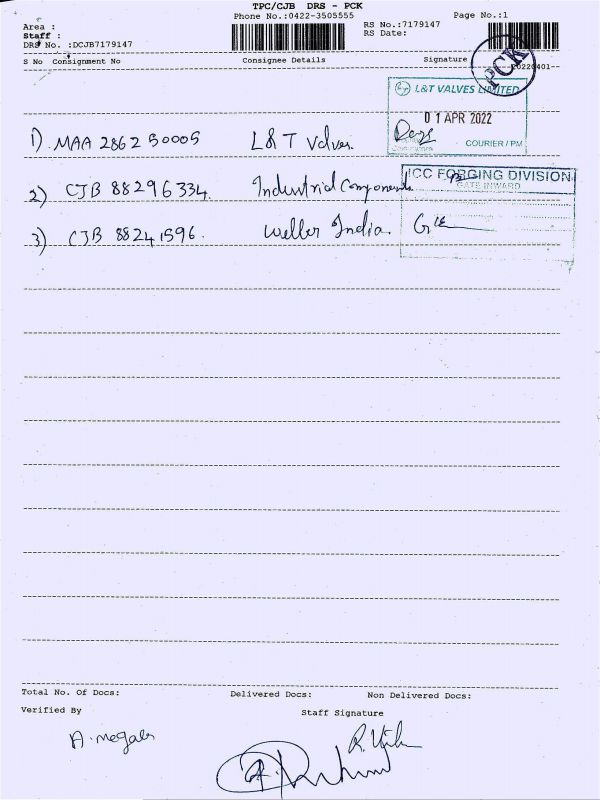 TPC/CJB DRS - PCK
Phone No.:0422-3505555
Page No.:1
Area :
Staff :
DRS No. :DCJB7179147
RS No.:7179147
RS Date:
20220401
S No Consignment No Consignee Details Signature
PCK
L&T VALVES LIMITED
01 APR 2022
COURIER / PM
1) MAA 286250005 L & T Valves
ICC FORGING DIVISION
GATE INWARD
2) CJB 88296334. Industrial Components
3) CJB 88241596. Weller India
Total No. Of Docs: Delivered Docs: Non Delivered Docs:
Verified By Staff Signature